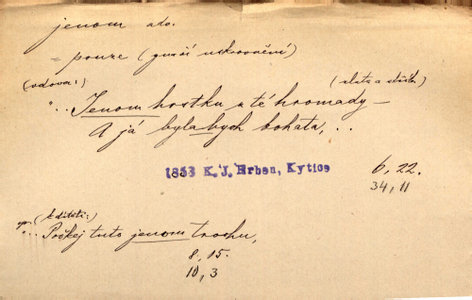 jenom adv.
= pouze (značí uskrovnění)
(vdova:) (zlata a stříbra)
"... Jenom hrstku z té hromady –
A já byla bych bohata, ..
1853 K. J. Erben, Kytice 6, 22.
34, 11
(k dítěti:)
"... Počkej tuto jenom trochu,
8, 15.
10, 3